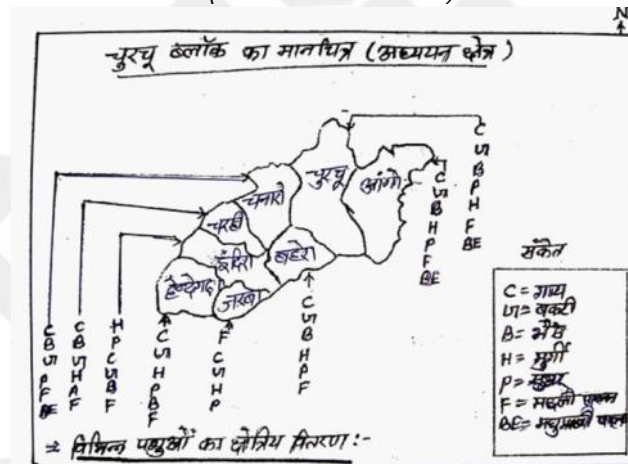 N
चुरचू ब्लॉक का मानचित्र (अध्ययन क्षेत्र)
चुरचू
आंगो
चनारो
चरही
इंदिरा
बहेरा
हेन्देगढ़
जरबा
C S B P H F BE
C S B H P F BE
C B S P F BE
C B S H A F
H P C S B F
C S H P B F
F C S H P
C S B H P F
संकेत
C = गाय
S = बकरी
B = भैंस
H = मुर्गी
P = सुअर
F = मछली पालन
BE = मधुमक्खी पालन
विभिन्न पशुओं का क्षेत्रिय वितरण :-